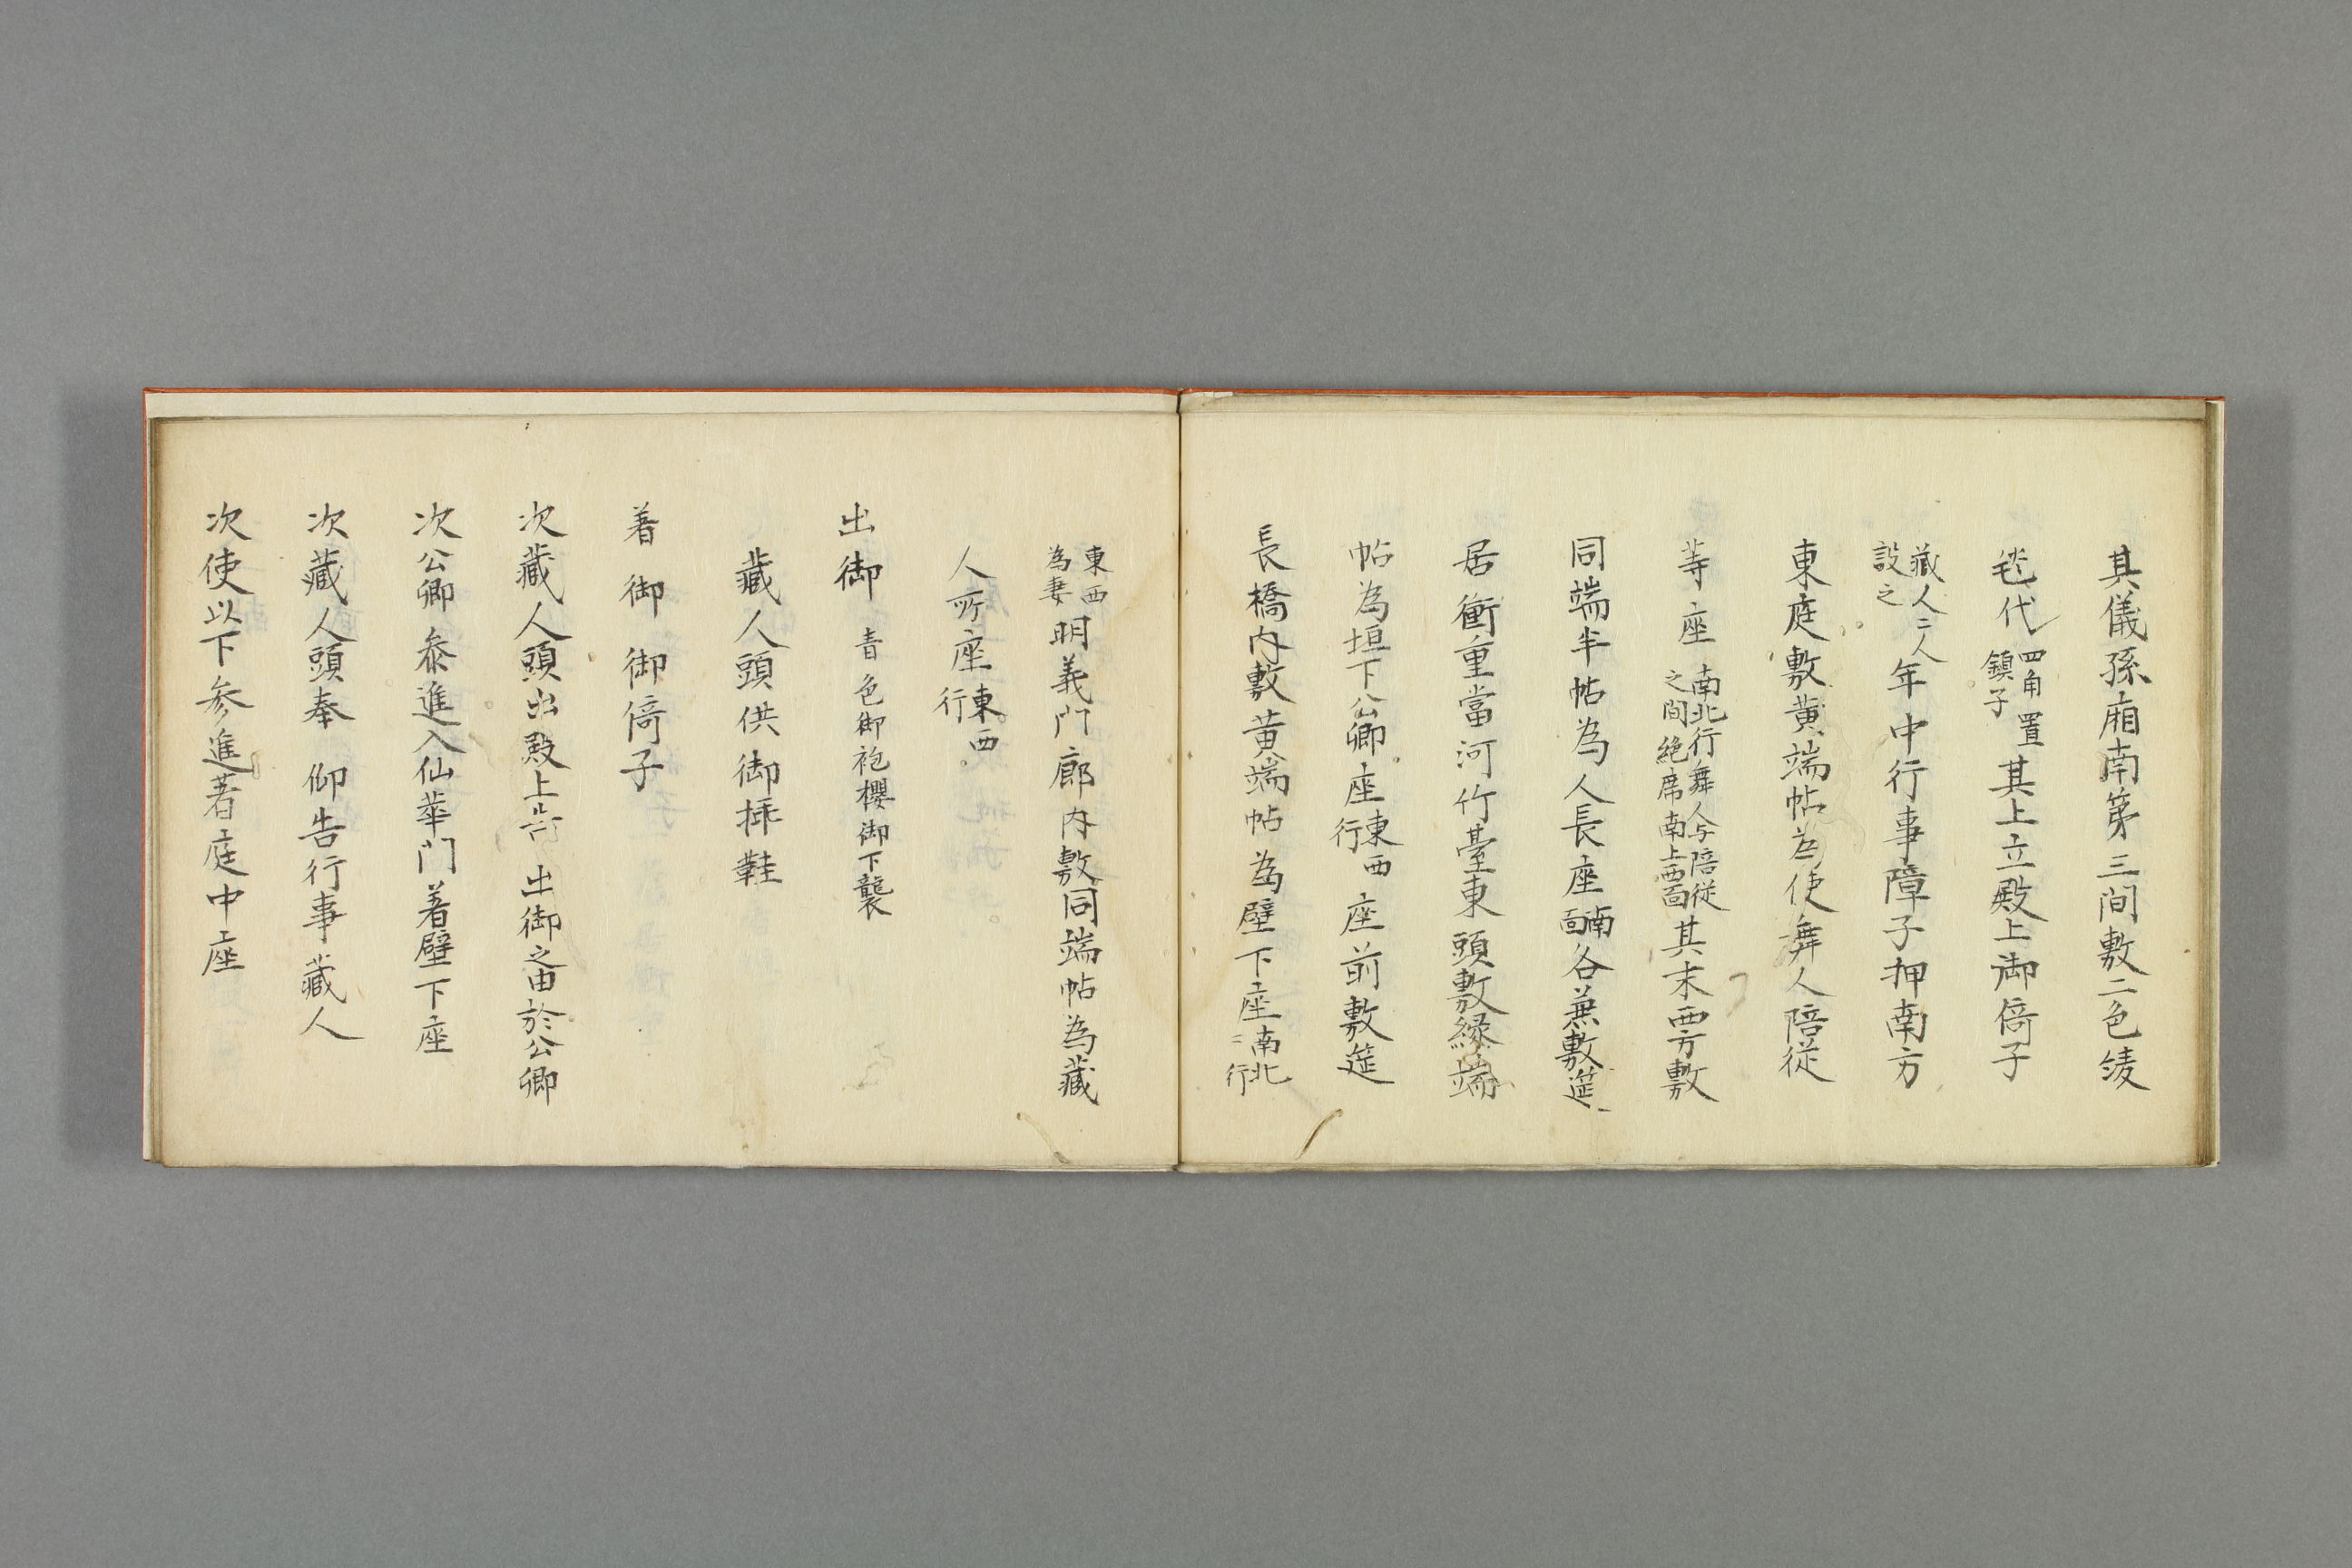 其儀孫廂南第三間敷二色綾
毯代四角置鎮子其上立殿上御倚子
藏人二人設之年中行事障子押南方
東庭敷黄端帖為使舞人陪従
等座南北行舞人与陪従之間絶席南上西面其末西方敷
同端半帖為人長座南面各兼敷莚
居衝重當河竹臺東頭敷緑端
帖為垣下公卿座東西行座前敷莚
長橋内敷黄端帖為壁下座南北行
東西為妻明義門廊内敷同端帖為藏
人所座東西行
出御青色御袍櫻御下襲
藏人頭供御挿鞋
着御御倚子
次藏人頭出殿上告出御之由於公卿
次公卿参進入仙華门着壁下座
次藏人頭奉仰告行事藏人
次使以下参進著庭中座